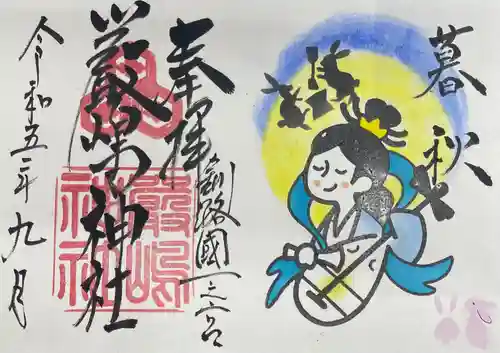 暮秋
奉拝
釧路國一之宮
嚴嶋神社
嚴嶋神社
令和五年九月